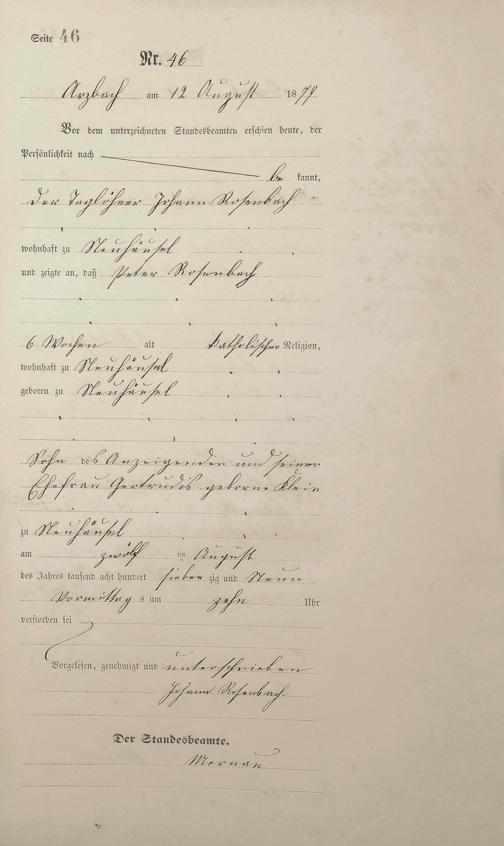 Seite 46
Nr. 46
Arzbach am 12 August 1879
Vor dem unterzeichneten Standesbeamten erschien heute, der
Persönlichkeit nach
be kannt,
der Taglöhner Johann Rosenbach
wohnhaft zu Neuhäusel
und zeigte an, daß Peter Rosenbach
6 Wochen alt katholischer Religion,
wohnhaft zu Neuhäusel
geboren zu Neuhäusel
Sohn des Anzeigenden und seiner
Ehefrau Gertrudis geborne Klein
zu Neuhäusel
am zwölf ten August
des Jahres tausend acht hundert sieben zig und Neun
Vormittag s um zehn Uhr
verstorben sei
Vorgelesen, genehmigt und unterschrieben
Johann Rosenbach.
Der Standesbeamte.